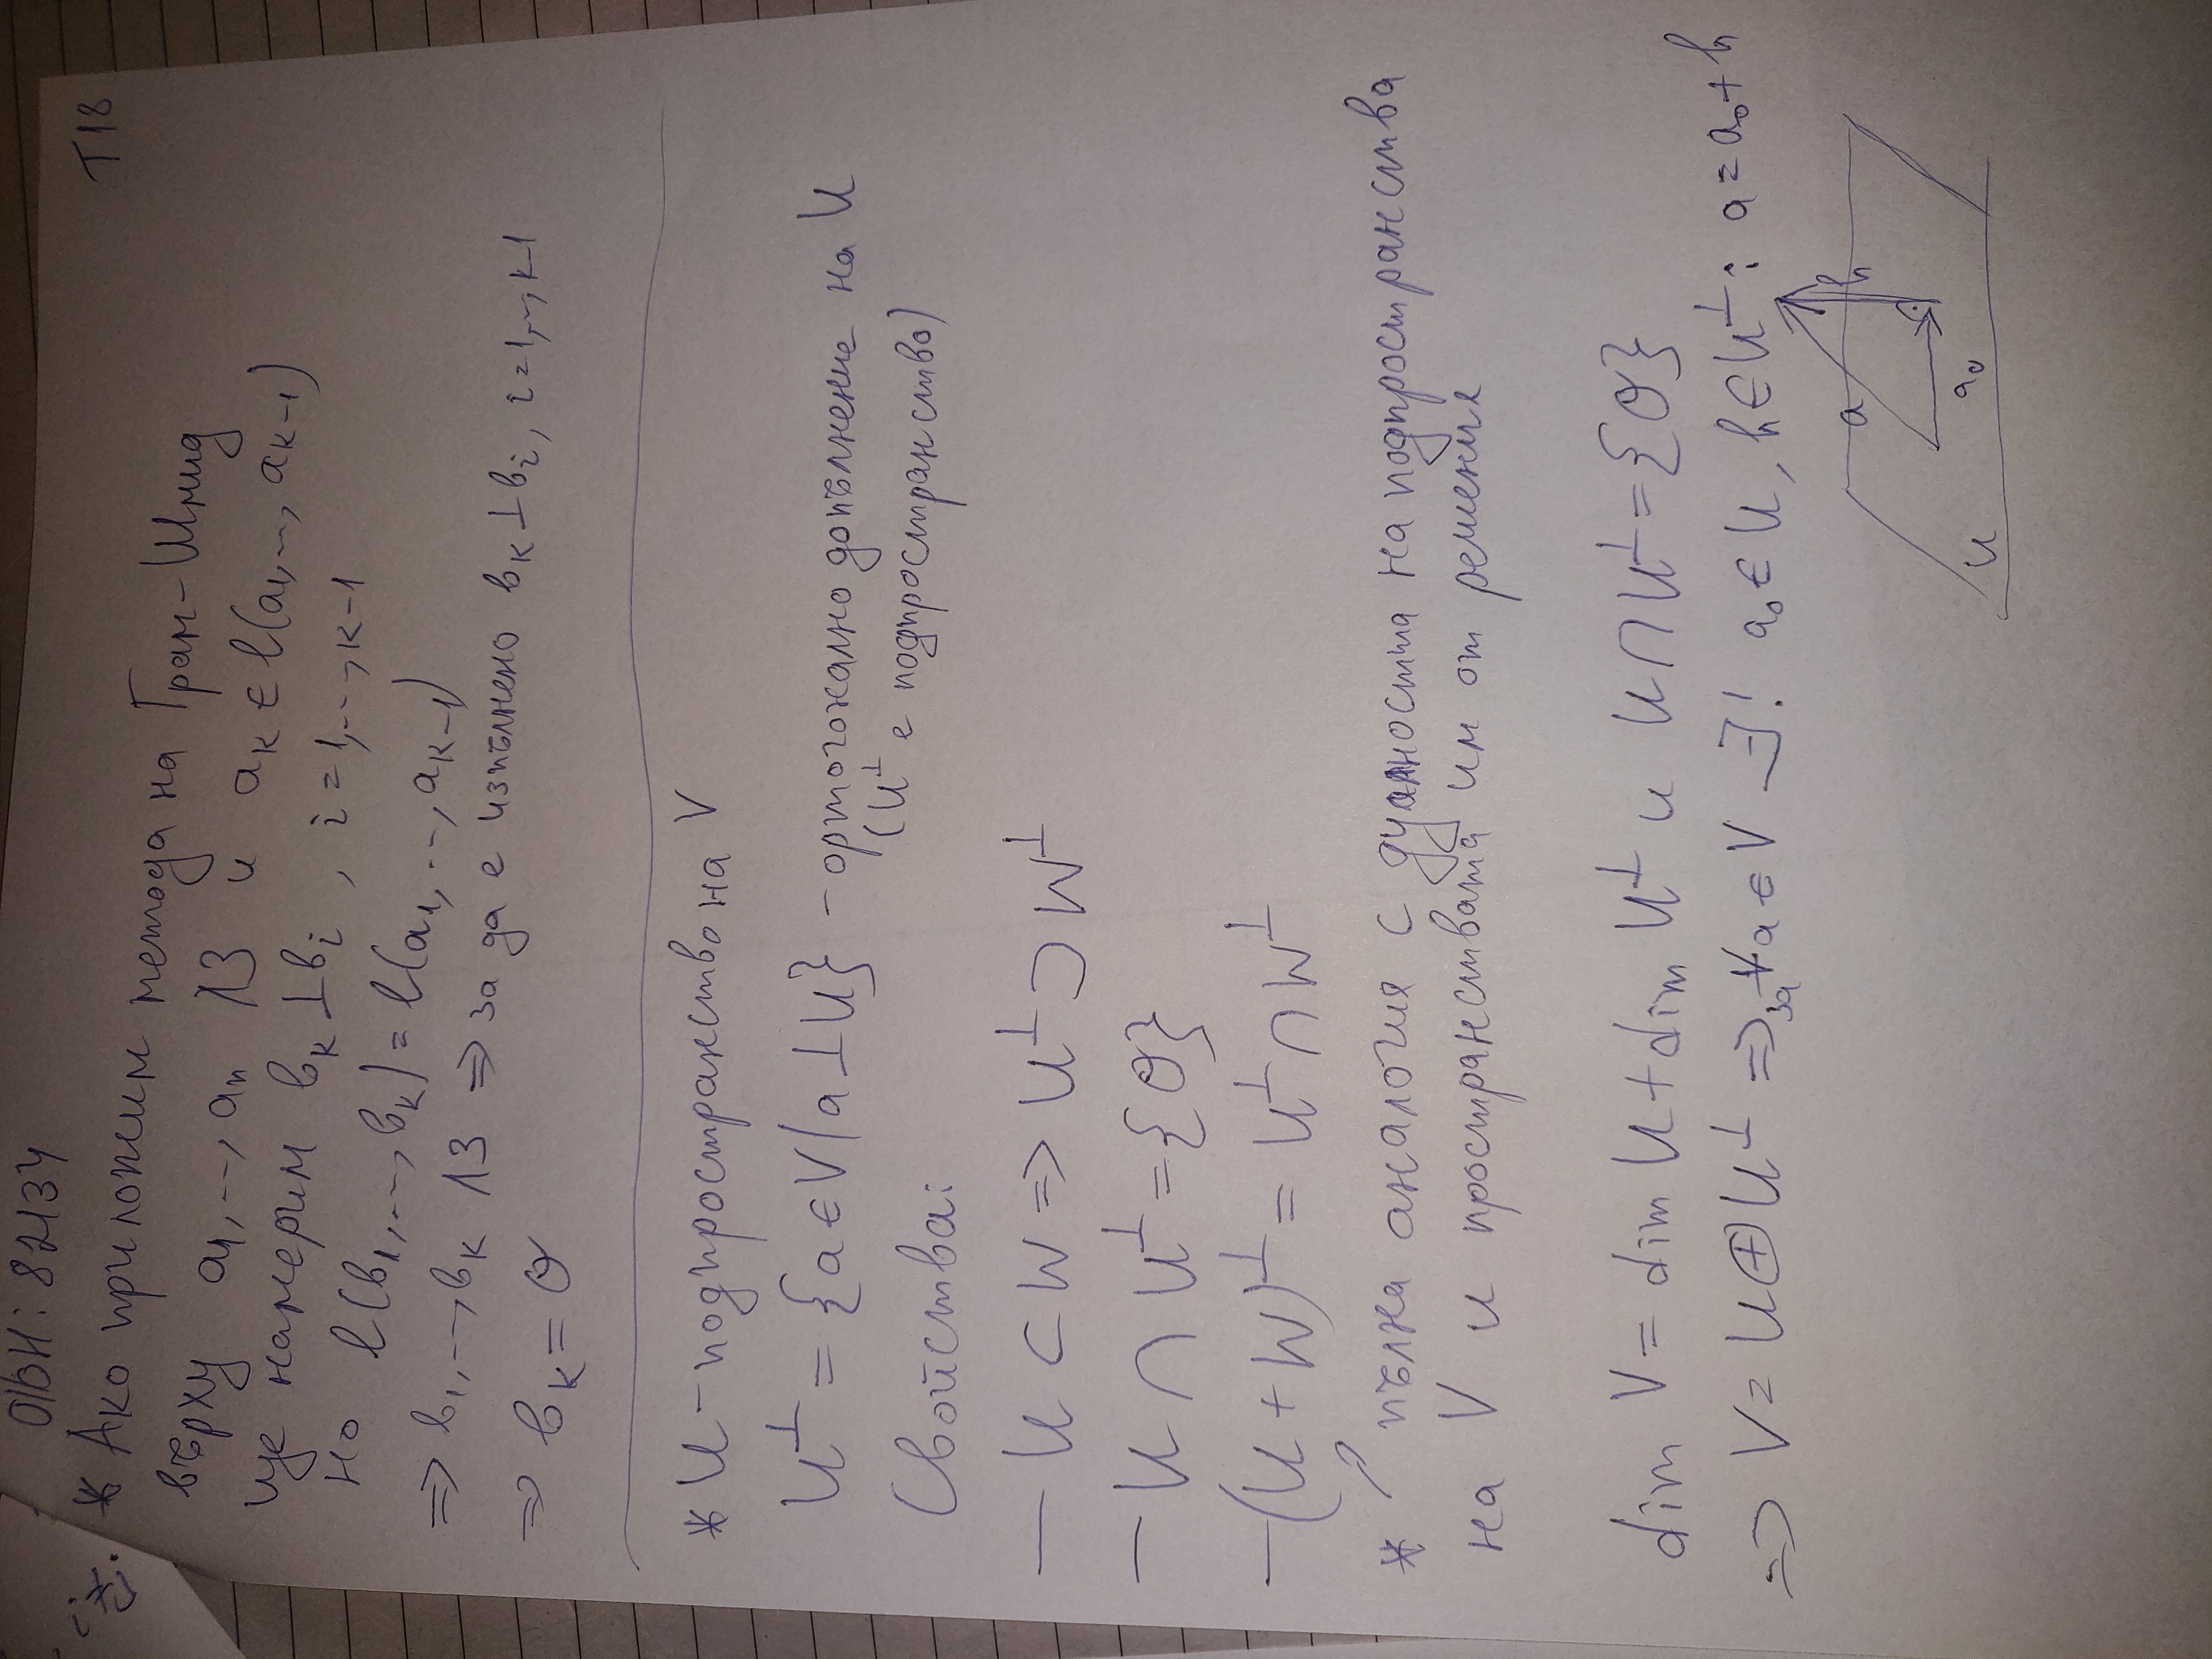 ФN: 82134
T18
* Ако приложим метода на Грам-Шмид
върху a₁,..,aₙ ЛЗ и aₖ ∈ l(a₁,..,aₖ₋₁)
ще намерим bₖ ⊥ bᵢ, i=1,..,k-1
но l(b₁,..,bₖ) = l(a₁,..,aₖ₋₁)
⇒ b₁,..,bₖ ЛЗ ⇒ за да е изпълнено bₖ⊥bᵢ, i=1,..,k-1
⇒ bₖ = O
* U – подпространство на V
U^⊥ = {a ∈ V | a ⊥ U} – ортогонално допълнение на U
(U^⊥ е подпространство)
Свойства:
— U ⊂ W ⇒ U^⊥ ⊃ W^⊥
— U ∩ U^⊥ = {O}
— (U + W)^⊥ = U^⊥ ∩ W^⊥
* ↗ пълна аналогия с дуалността на подпространства
на V и пространствата им от решения
dim V = dim U + dim U^⊥ и U ∩ U^⊥ = {O}
⇒ V = U ⊕ U^⊥ ⇒ за ∀a ∈ V ∃! a₀ ∈ U, h ∈ U^⊥ : a = a₀ + h
a h
a₀
U